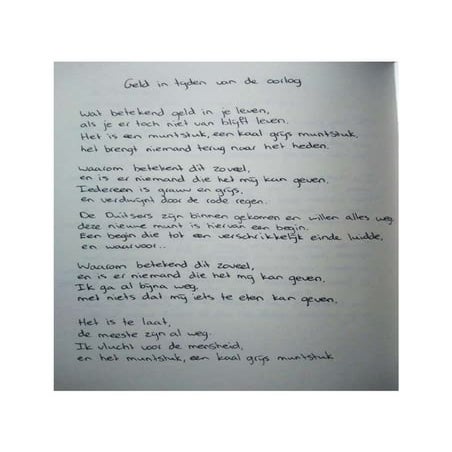 Geld in tijden van de oorlog
Wat betekend geld in je leven,
als je er toch niet van blijft leven.
Het is een muntstuk, een kaal grijs muntstuk,
het brengt niemand terug naar het heden.
Waarom betekent dit zoveel,
en is er niemand die het mij kan geven.
Iedereen is grauw en grijs,
en verdwijnt door de rode regen.
De Duitsers zijn binnen gekomen en willen alles weg.
deze nieuwe munt is hiervan een begin.
Een begin die tot een verschrikkelijk einde luidde,
en waarvoor..
Waarom betekend dit zoveel,
en is er niemand die het mij kan geven.
Ik ga al bijna weg,
met niets dat mij iets te eten kan geven.
Het is te laat,
de meeste zijn al weg.
Ik vlucht voor de mensheid,
en het muntstuk, een kaal grijs muntstuk